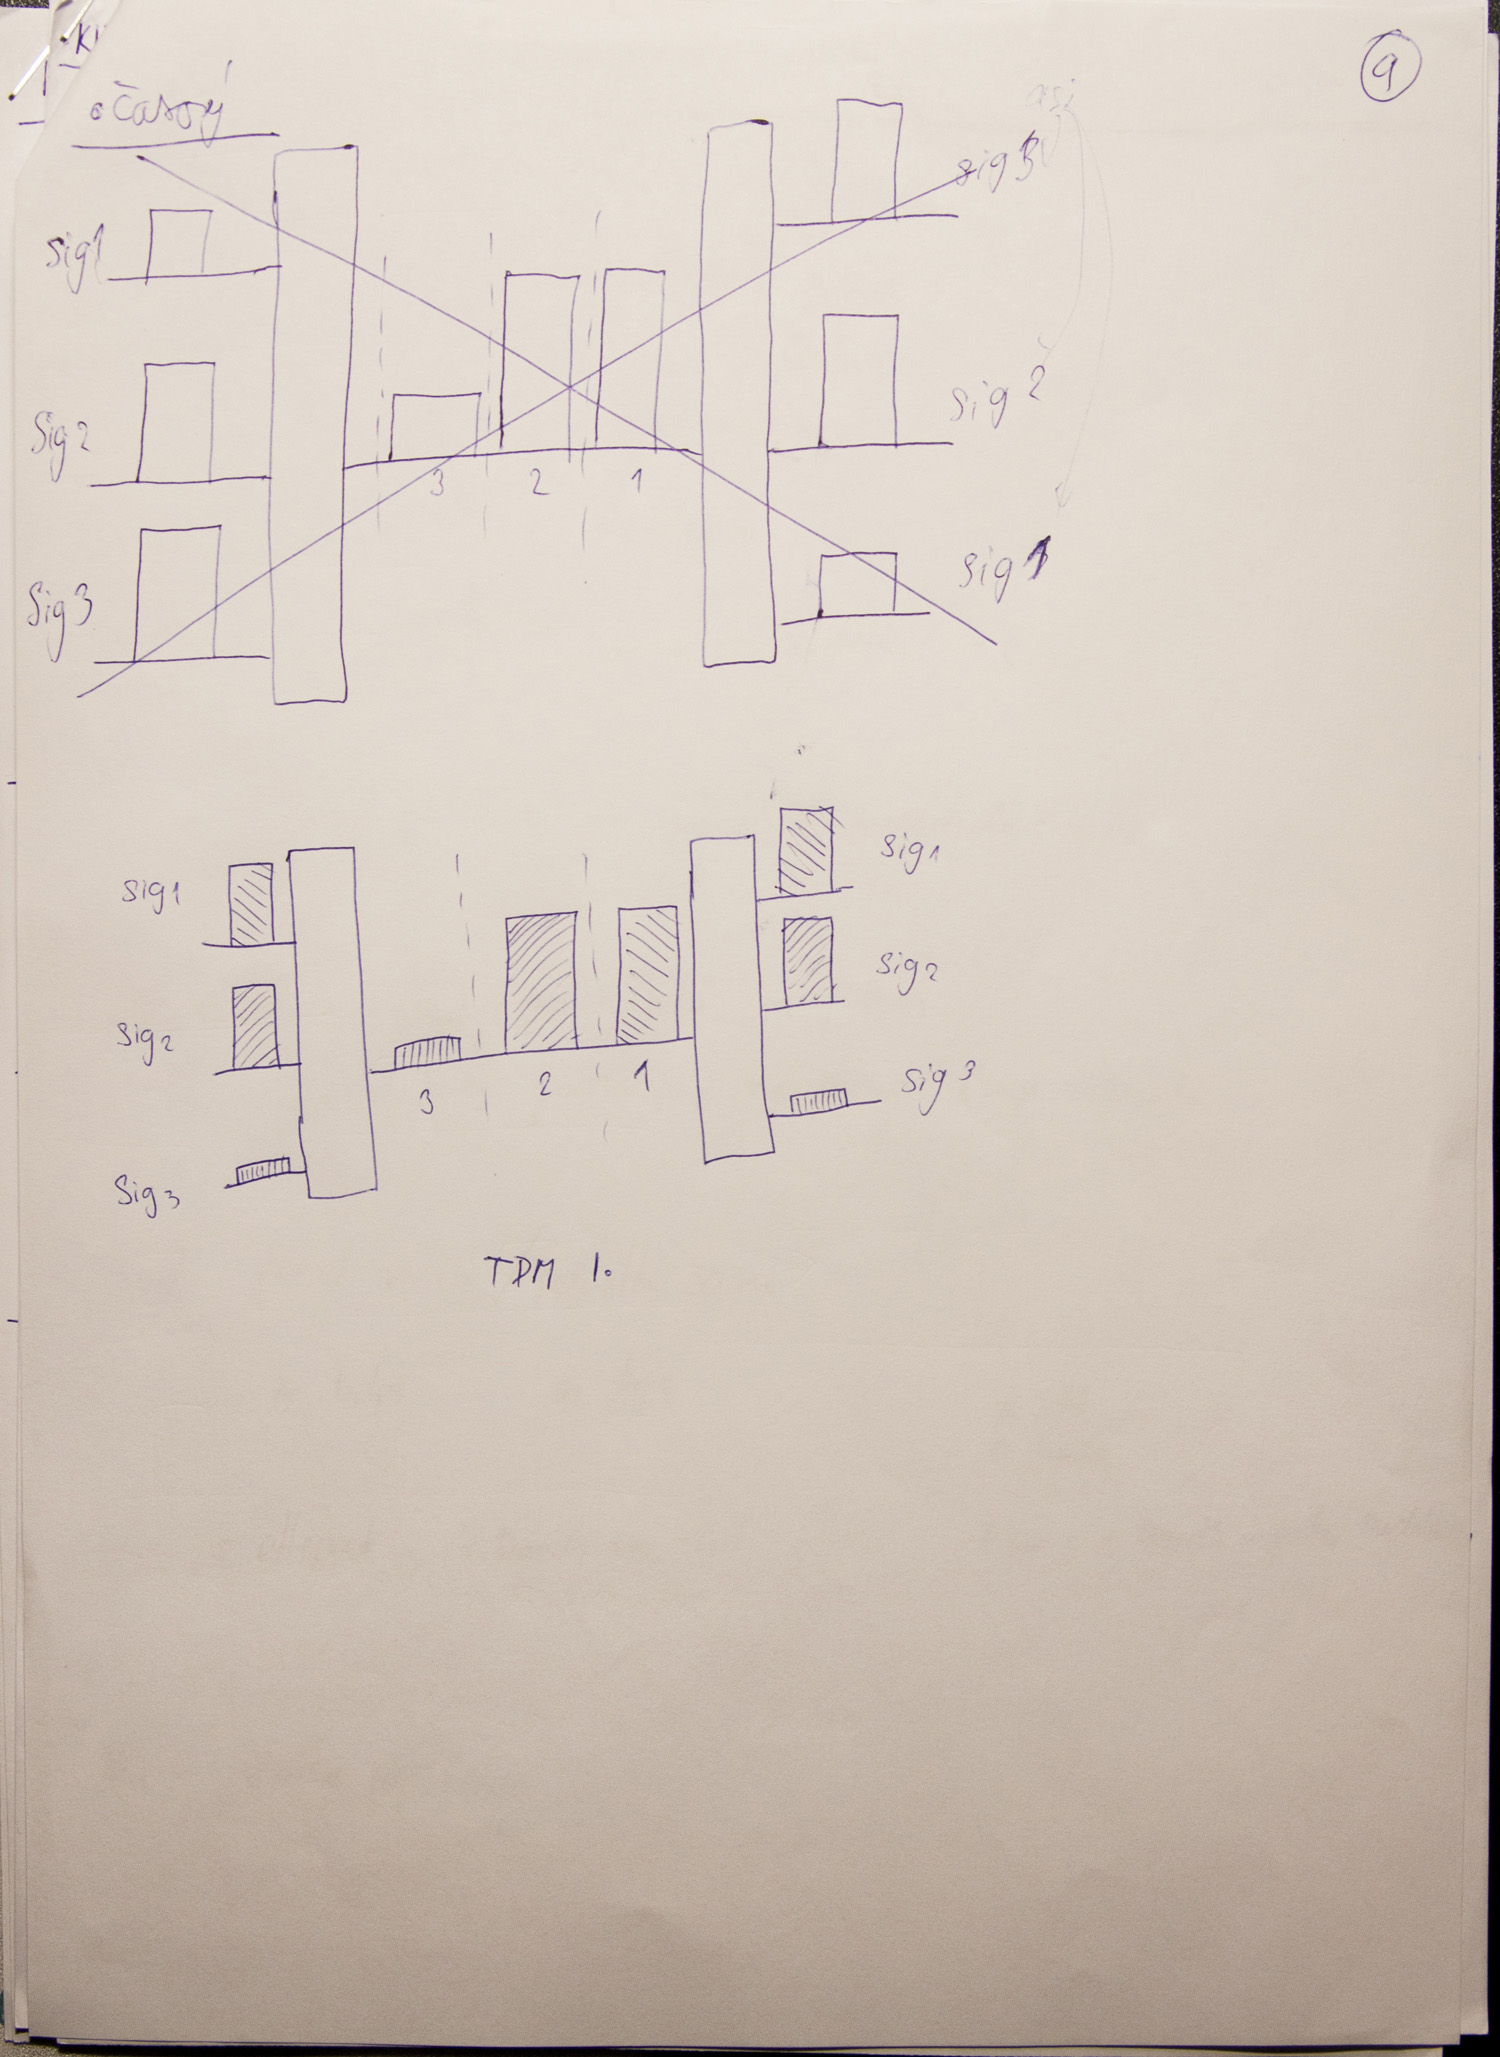 9
• časový
sig1
sig2
sig3
3 2 1
sig3
sig2
sig1
sig1
sig2
sig3
3 2 1
sig1
sig2
sig3
TDM 1.